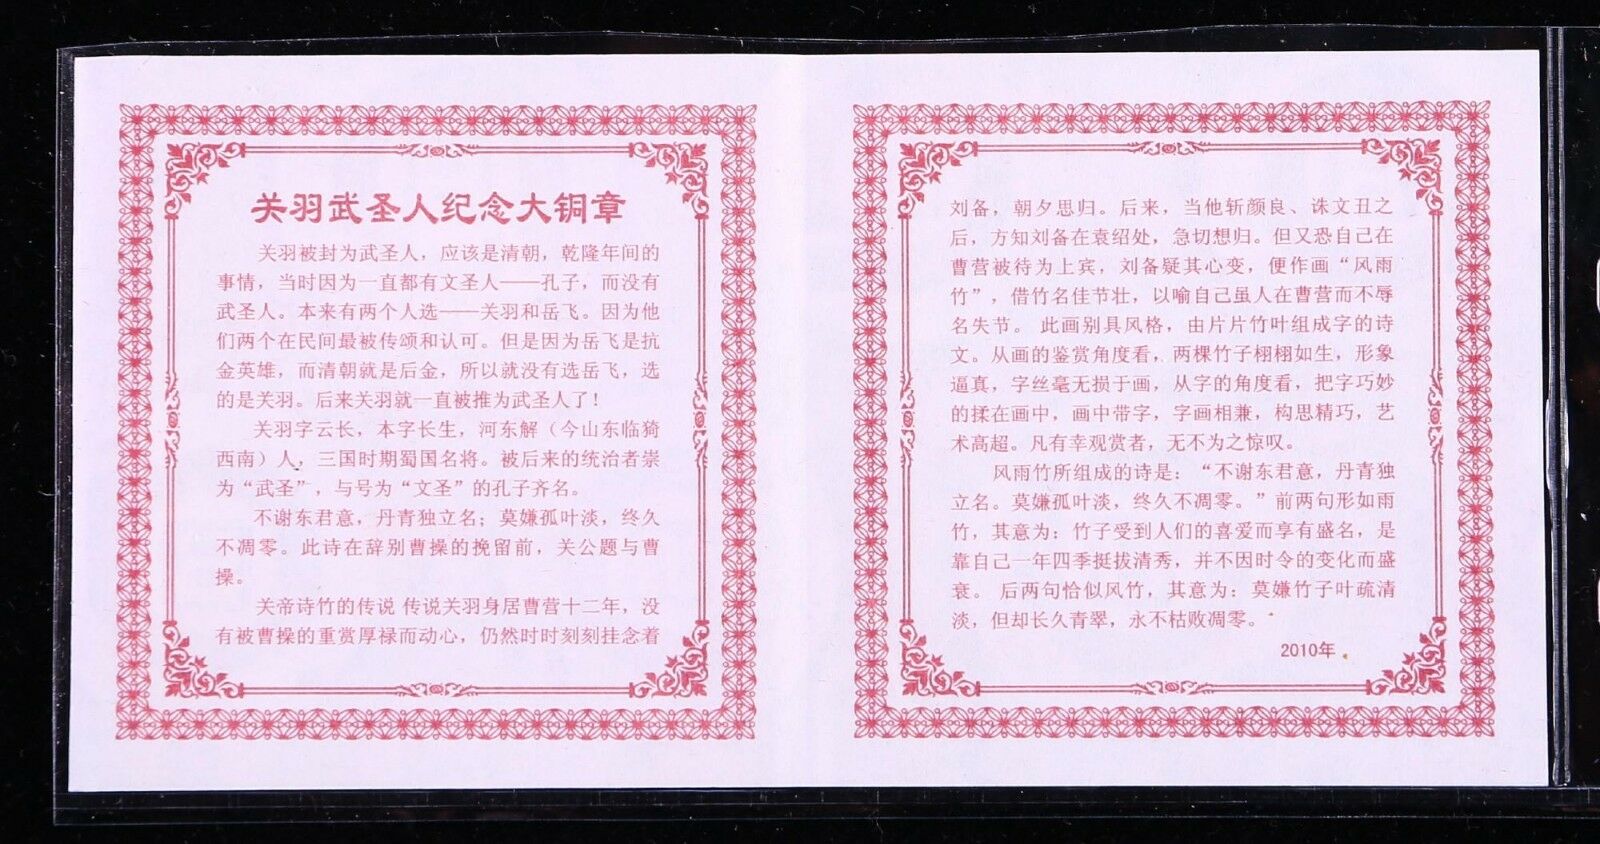 关羽武圣人纪念大铜章
关羽被封为武圣人，应该是清朝，乾隆年间的
事情，当时因为一直都有文圣人——孔子，而没有
武圣人。本来有两个人选——关羽和岳飞。因为他
们两个在民间最被传颂和认可。但是因为岳飞是抗
金英雄，而清朝就是后金，所以就没有选岳飞，选
的是关羽。后来关羽就一直被推为武圣人了！
关羽字云长，本字长生，河东解（今山东临猗
西南）人，三国时期蜀国名将。被后来的统治者崇
为“武圣”，与号为“文圣”的孔子齐名。
不谢东君意，丹青独立名；莫嫌孤叶淡，终久
不凋零。此诗在辞别曹操的挽留前，关公题与曹
操。
关帝诗竹的传说 传说关羽身居曹营十二年，没
有被曹操的重赏厚禄而动心，仍然时时刻刻挂念着
刘备，朝夕思归。后来，当他斩颜良、诛文丑之
后，方知刘备在袁绍处，急切想归。但又恐自己在
曹营被待为上宾，刘备疑其心变，便作画“风雨
竹”，借竹名佳节壮，以喻自己虽人在曹营而不辱
名失节。 此画别具风格，由片片竹叶组成字的诗
文。从画的鉴赏角度看，两棵竹子栩栩如生，形象
逼真，字丝毫无损于画，从字的角度看，把字巧妙
的揉在画中，画中带字，字画相兼，构思精巧，艺
术高超。凡有幸观赏者，无不为之惊叹。
风雨竹所组成的诗是：“不谢东君意，丹青独
立名。莫嫌孤叶淡，终久不凋零。”前两句形如雨
竹，其意为：竹子受到人们的喜爱而享有盛名，是
靠自己一年四季挺拔清秀，并不因时令的变化而盛
衰。 后两句恰似风竹，其意为：莫嫌竹子叶疏清
淡，但却长久青翠，永不枯败凋零。
2010年